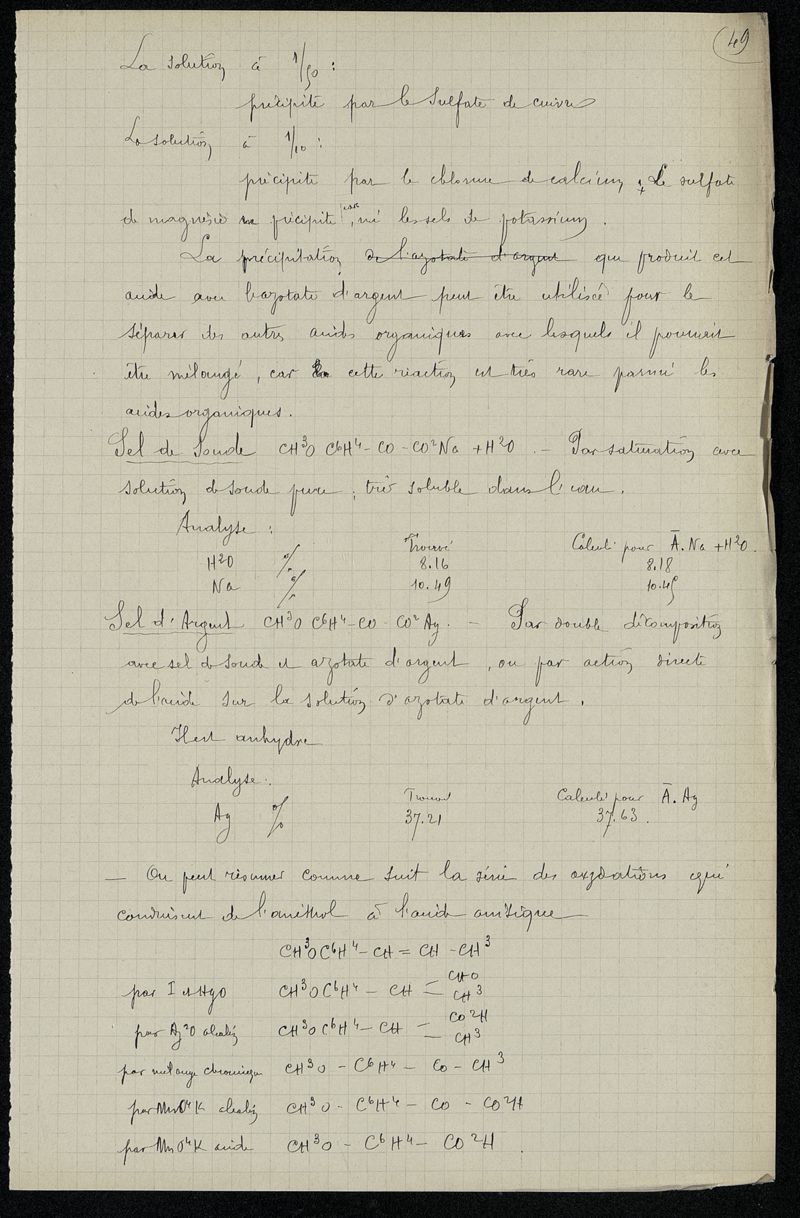 49
La solution à 1/50 :
précipite par le sulfate de cuivre
La solution à 1/10 :
précipite par le chlorure de calcium ; Le sulfate
de magnésie ne précipite pas, ni les sels de potassium.
La précipitation de l'azotate d'argent que produit cet
acide avec l'azotate d'argent peut être utilisée pour le
séparer des autres acides organiques avec lesquels il pourrait
être mélangé, car cette réaction est très rare parmi les
acides organiques.
Sel de Soude CH³O C⁶H⁴ - CO - CO²Na + H²O. — Par saturation avec
solution de soude pure ; très soluble dans l'eau.
Analyse :
Trouvé Calculé pour Ā.Na + H²O.
H²O % 8.16 8.18
Na % 10.49 10.45
Sel d'Argent CH³O C⁶H⁴ - CO - CO² Ag. — Par double décomposition
avec sel de soude et azotate d'argent, ou par action directe
de l'acide sur la solution d'azotate d'argent.
Il est anhydre
Analyse :
Trouvé Calculé pour Ā.Ag
Ag % 37.21 37.63.
— On peut résumer comme suit la série des oxydations qui
conduisent de l'anéthol à l'acide anisique
CH³O C⁶H⁴ - CH = CH - CH³
par I et HgO CH³O C⁶H⁴ - CH = CHO
CH³
par Ag²O alcalin CH³O C⁶H⁴ - CH = CO²H
CH³
par mélange chromique CH³O - C⁶H⁴ - CO - CH³
par MnO⁴K alcalin CH³O - C⁶H⁴ - CO - CO²H
par MnO⁴K acide CH³O - C⁶H⁴ - CO²H.